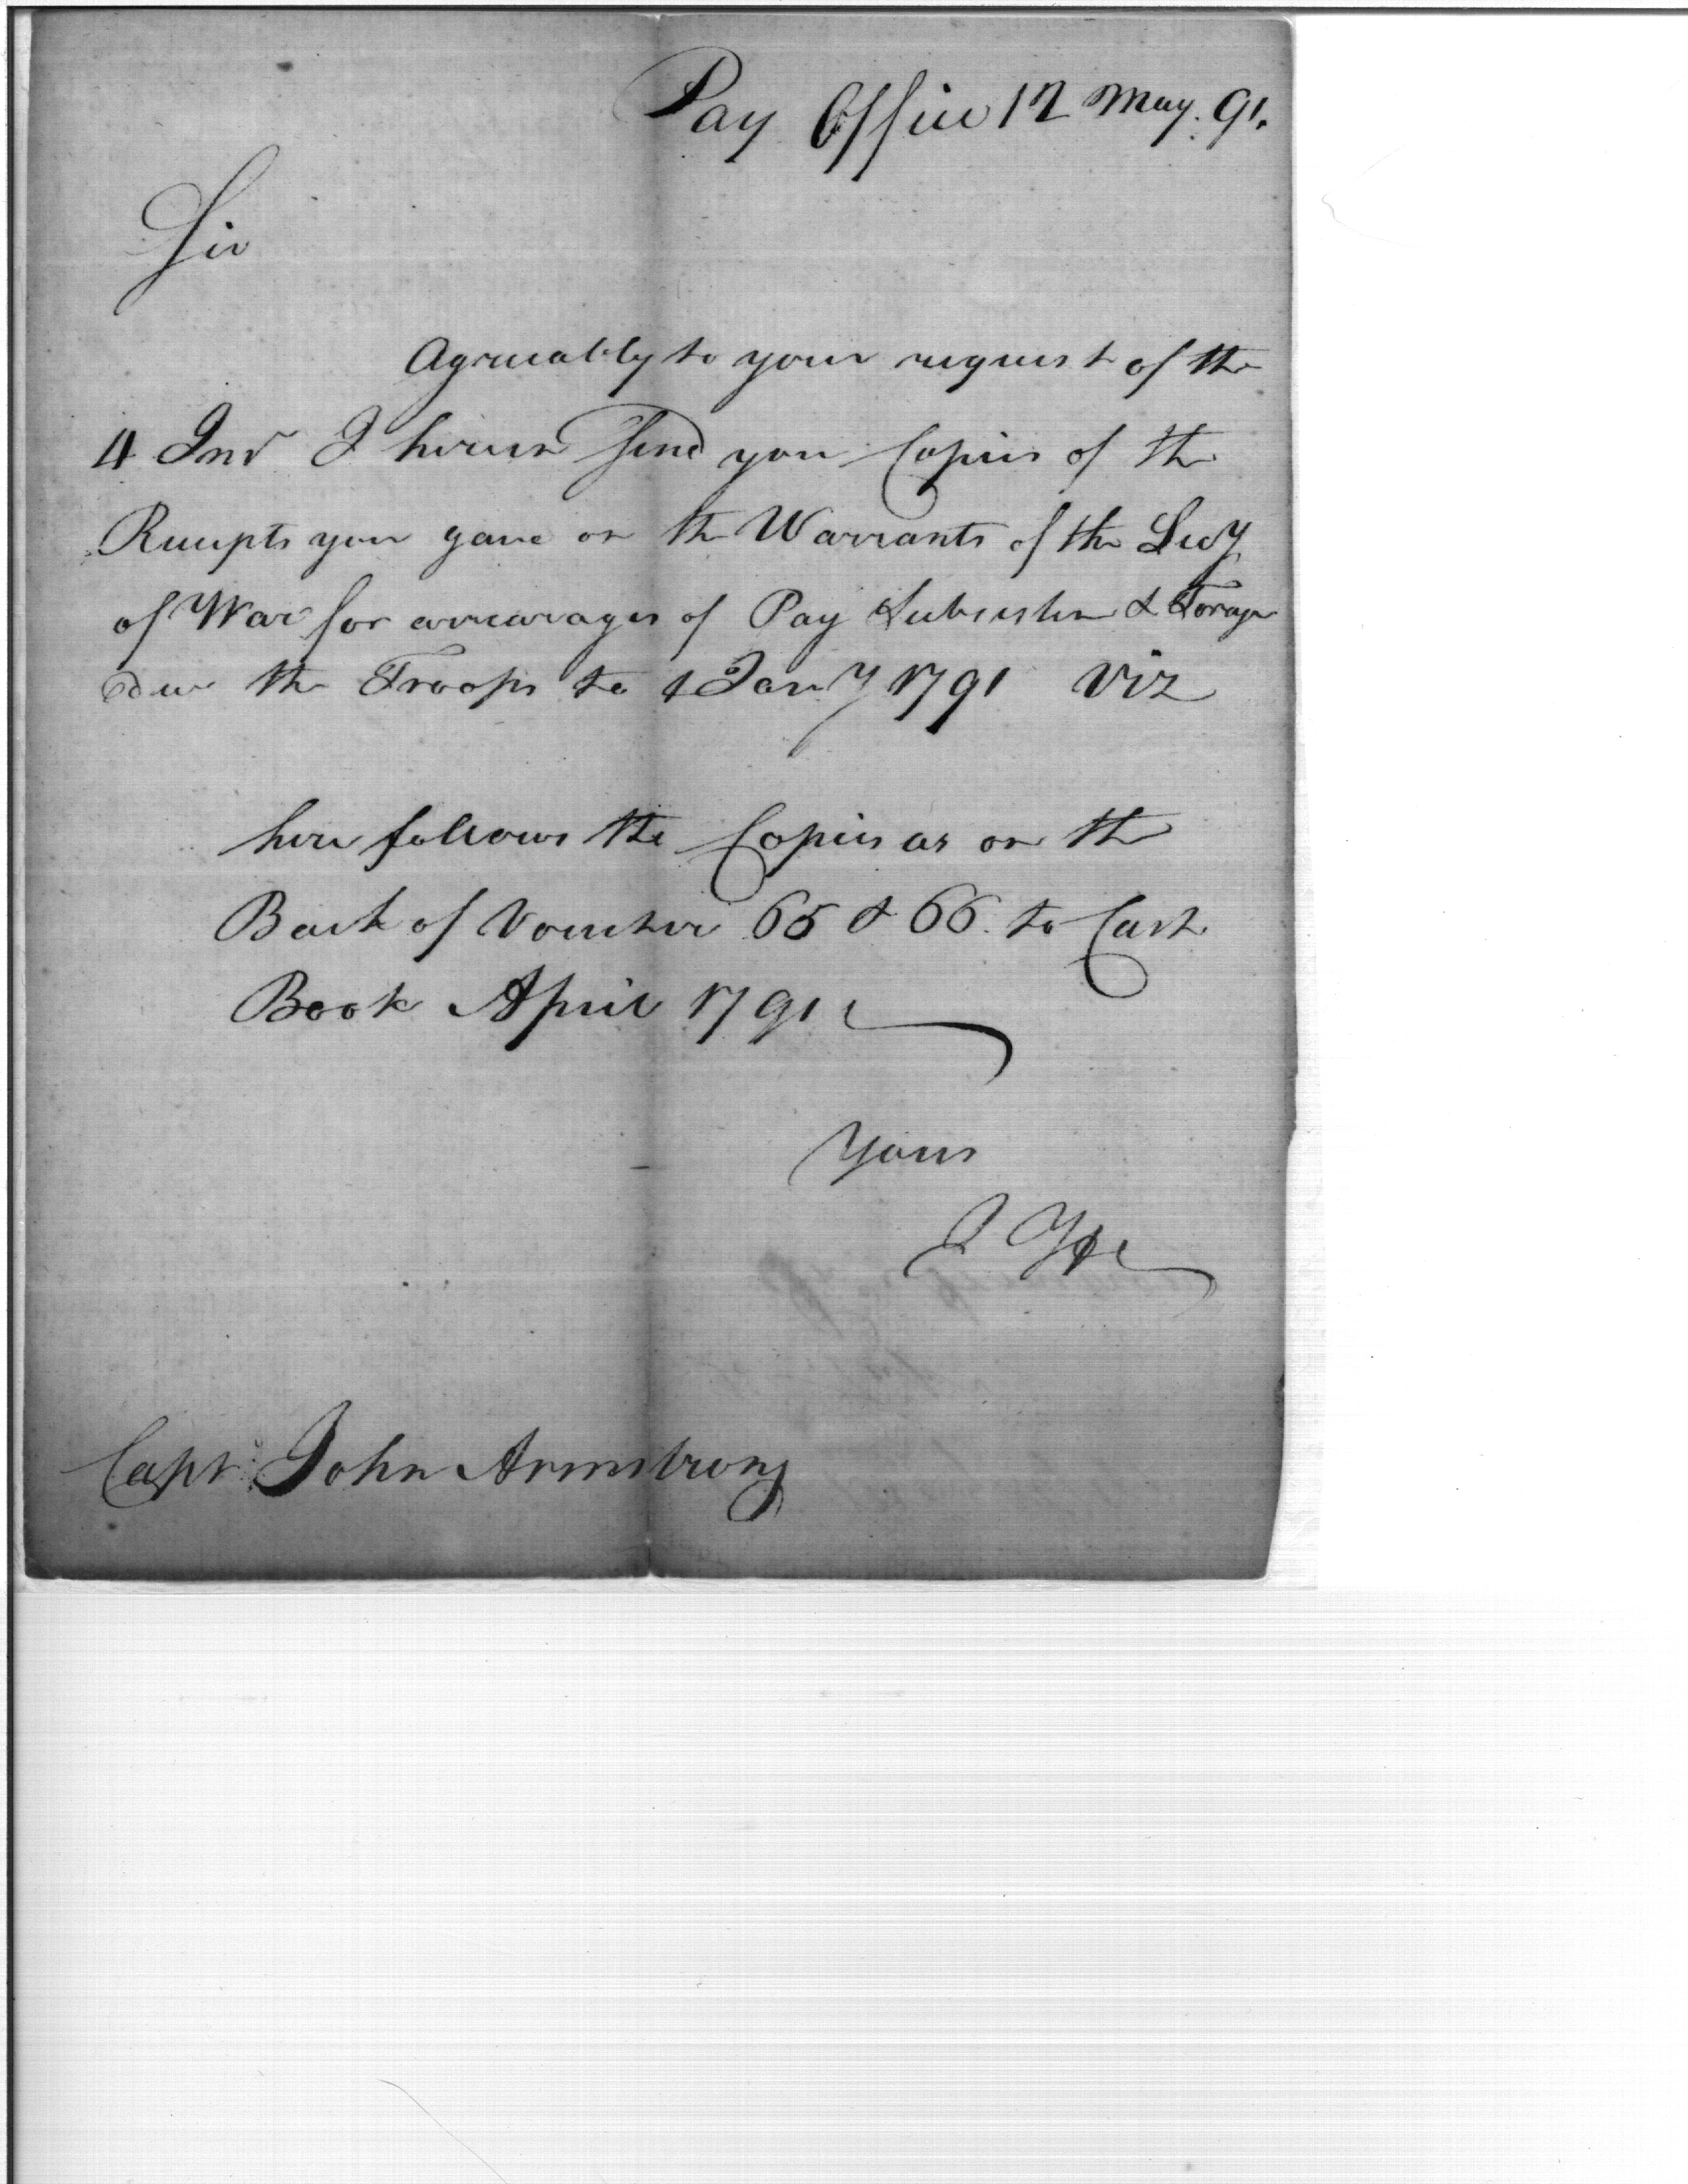 Pay Office 12 May. 91.
Sir
Agreeably to your request of the
4 Inst I herein send you Copies of the
Receipts you gave on the Warrants of the Secy
of War for arrearages of Pay Subsisten & Forage
due the Troops to 1 Jany 1791 Viz
here follows the Copies as on the
Back of Voucher 65 & 66. to Cash
Book April 1791
Yours
J H
Capt John Armstrong